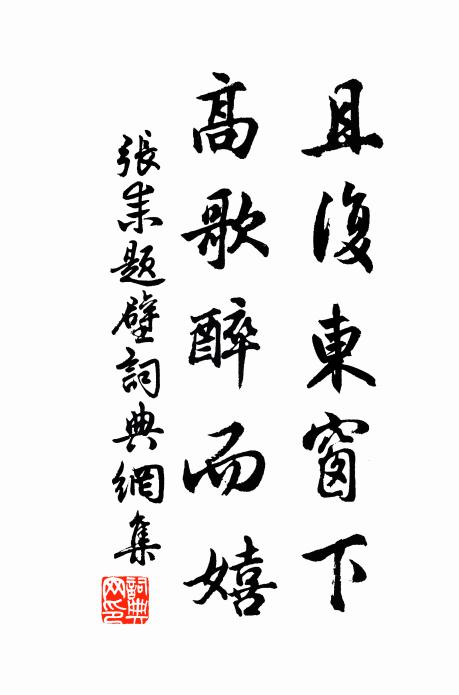 且復東窗下
高歌醉而嬉
張耒題壁詞典網集
詞典網印